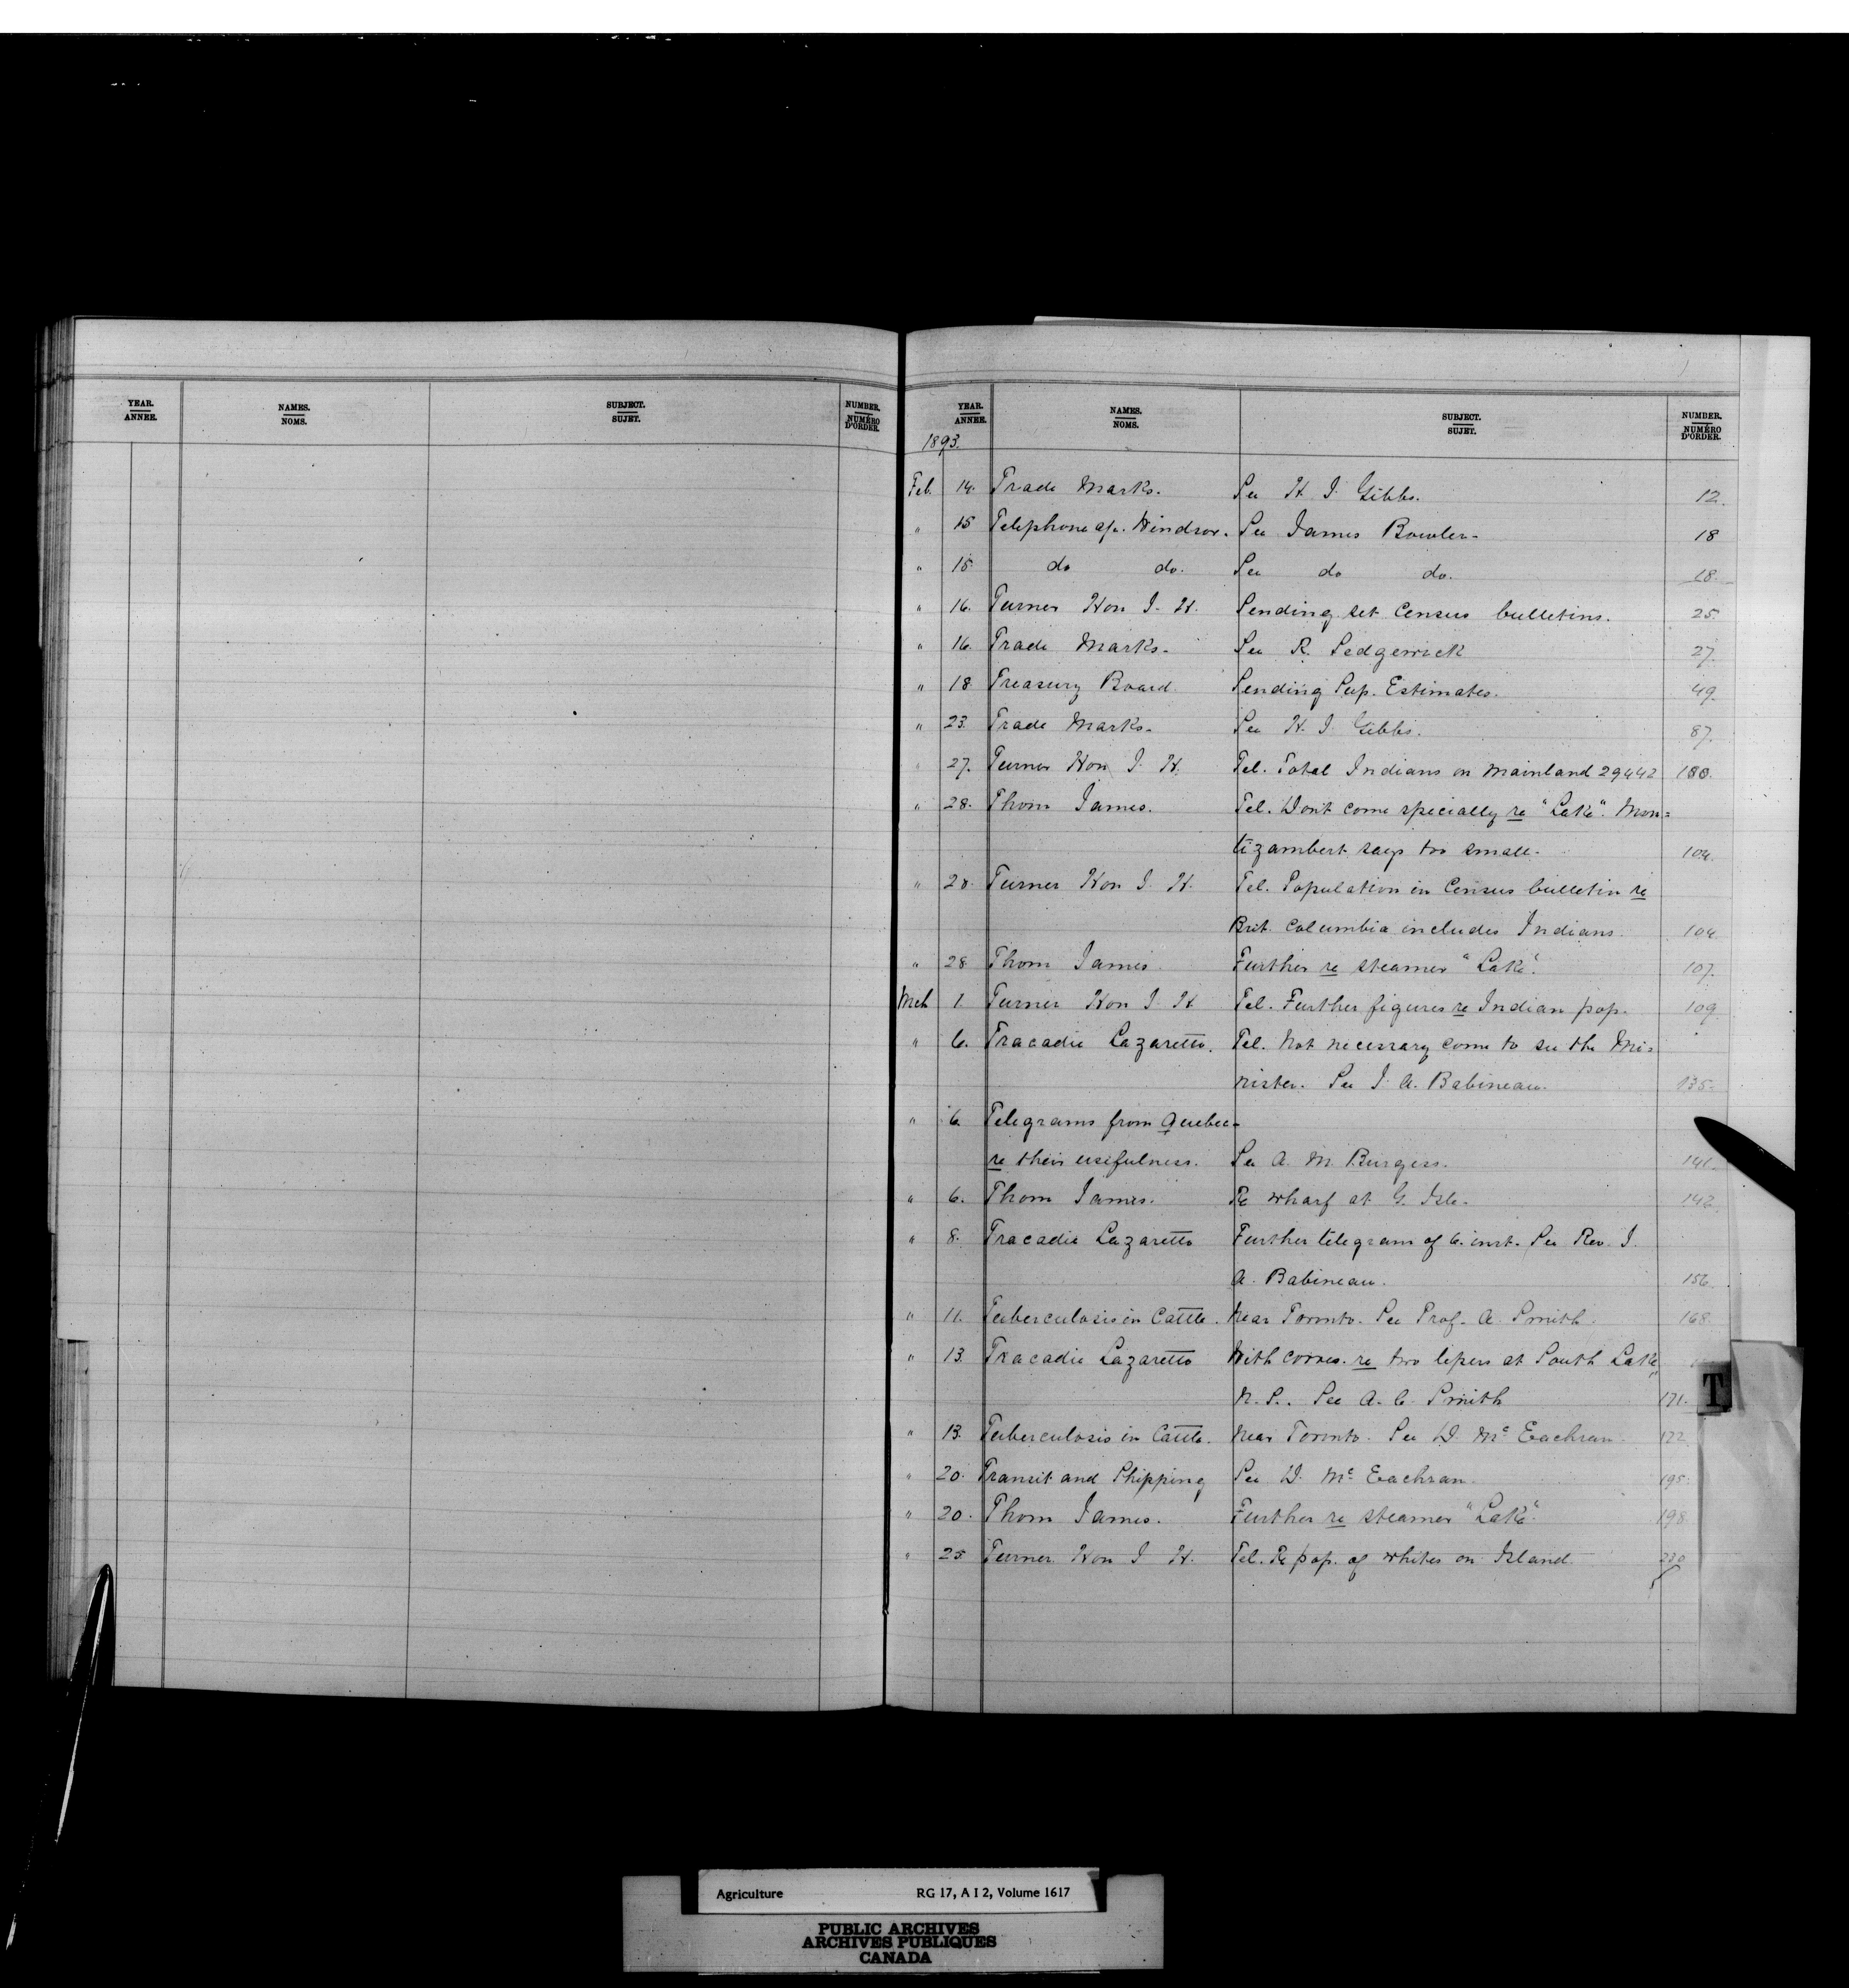 YEAR. NAMES. SUBJECT. NUMBER.
ANNEE. NOMS. SUJET. NUMÉRO D'ORDER.
YEAR. NAMES. SUBJECT. NUMBER.
ANNEE. NOMS. SUJET. NUMÉRO D'ORDER.
1893.
Feb. 14. Trade Marks. See H J. Gibbs. 12.
" 15 Telephone a/c. Windsor. See James Bowler. 18
" 15. do do. See do do. 18.
" 16. Turner Hon J. H. Sending set Census bulletins. 25.
" 16. Trade Marks. See R. Sedgewick 27.
" 18 Treasury Board. Sending Sup. Estimates. 49.
" 23. Trade Marks. See H. J. Gibbs. 87.
" 27. Turner Hon J. H. Tel. Total Indians on Mainland 29442 100.
" 28. Thom James. Tel. Don't come specially re "Lake". Mon=
tizambert says too small. 104.
" 28. Turner Hon J. H. Tel. Population in Census bulletin re
Brit. Columbia includes Indians. 104
" 28 Thom James. Further re steamer "Lake". 107.
Mch 1. Turner Hon J. H Tel. Further figures re Indian pop. 109
" 6. Tracadie Lazaretto. Tel. Not necessary come to see the Mi=
nister. See J. A. Babineau. 135.
" 6. Telegrams from Quebec
re their usefulness. See A. M. Burgess. 141.
" 6. Thom James. Re wharf at G. Isle. 142.
" 8. Tracadie Lazaretto Further telegram of 6. inst. See Rev. J.
A. Babineau. 156.
" 11. Tuberculosis in Cattle. Near Toronto. See Prof. A. Smith. 168.
" 13. Tracadie Lazaretto With corres. re two lepers at South Lake,
N.S.. See A. C. Smith 171.
" 13. Tuberculosis in Cattle. Near Toronto. See D. Mc Eachran. 172
" 20. Transit and Shipping See D. Mc Eachran. 195.
" 20. Thom James. Further re steamer "Lake". 198
" 25 Turner Hon J H. Tel. Re pop. of whites on Island. 230
T
Agriculture RG 17, A I 2, Volume 1617
PUBLIC ARCHIVES
ARCHIVES PUBLIQUES
CANADA